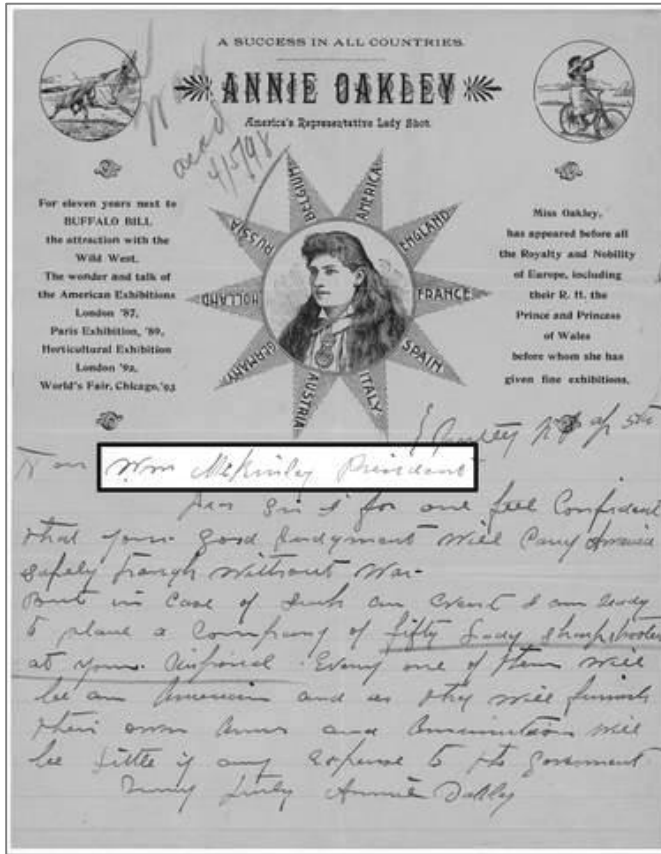 A SUCCESS IN ALL COUNTRIES.
ANNIE OAKLEY
America's Representative Lady Shot.
acad
4/5/98
For eleven years next to
BUFFALO BILL
the attraction with the
Wild West.
The wonder and talk of
the American Exhibitions
London '87,
Paris Exhibition, '89,
Horticultural Exhibition
London '92,
World's Fair, Chicago, '93
RUSSIA
BELGIUM
AMERICA
ENGLAND
FRANCE
SPAIN
ITALY
AUSTRIA
GERMANY
HOLLAND
Miss Oakley,
has appeared before all
the Royalty and Nobility
of Europe, including
their R. H. the
Prince and Princess
of Wales
before whom she has
given fine exhibitions.
5th
Hon Wm McKinley President
Dear Sir I for one feel Confident
that your good judgment will Carry America
safely through without War-
But in Case of such an Event I am ready
to place a Company of fifty Lady sharpshooters
at your disposal. Every one of them will
be an American and as they will furnish
their own Arms and Ammunition will
be little if any expense to the Government
Very truly Annie Oakley